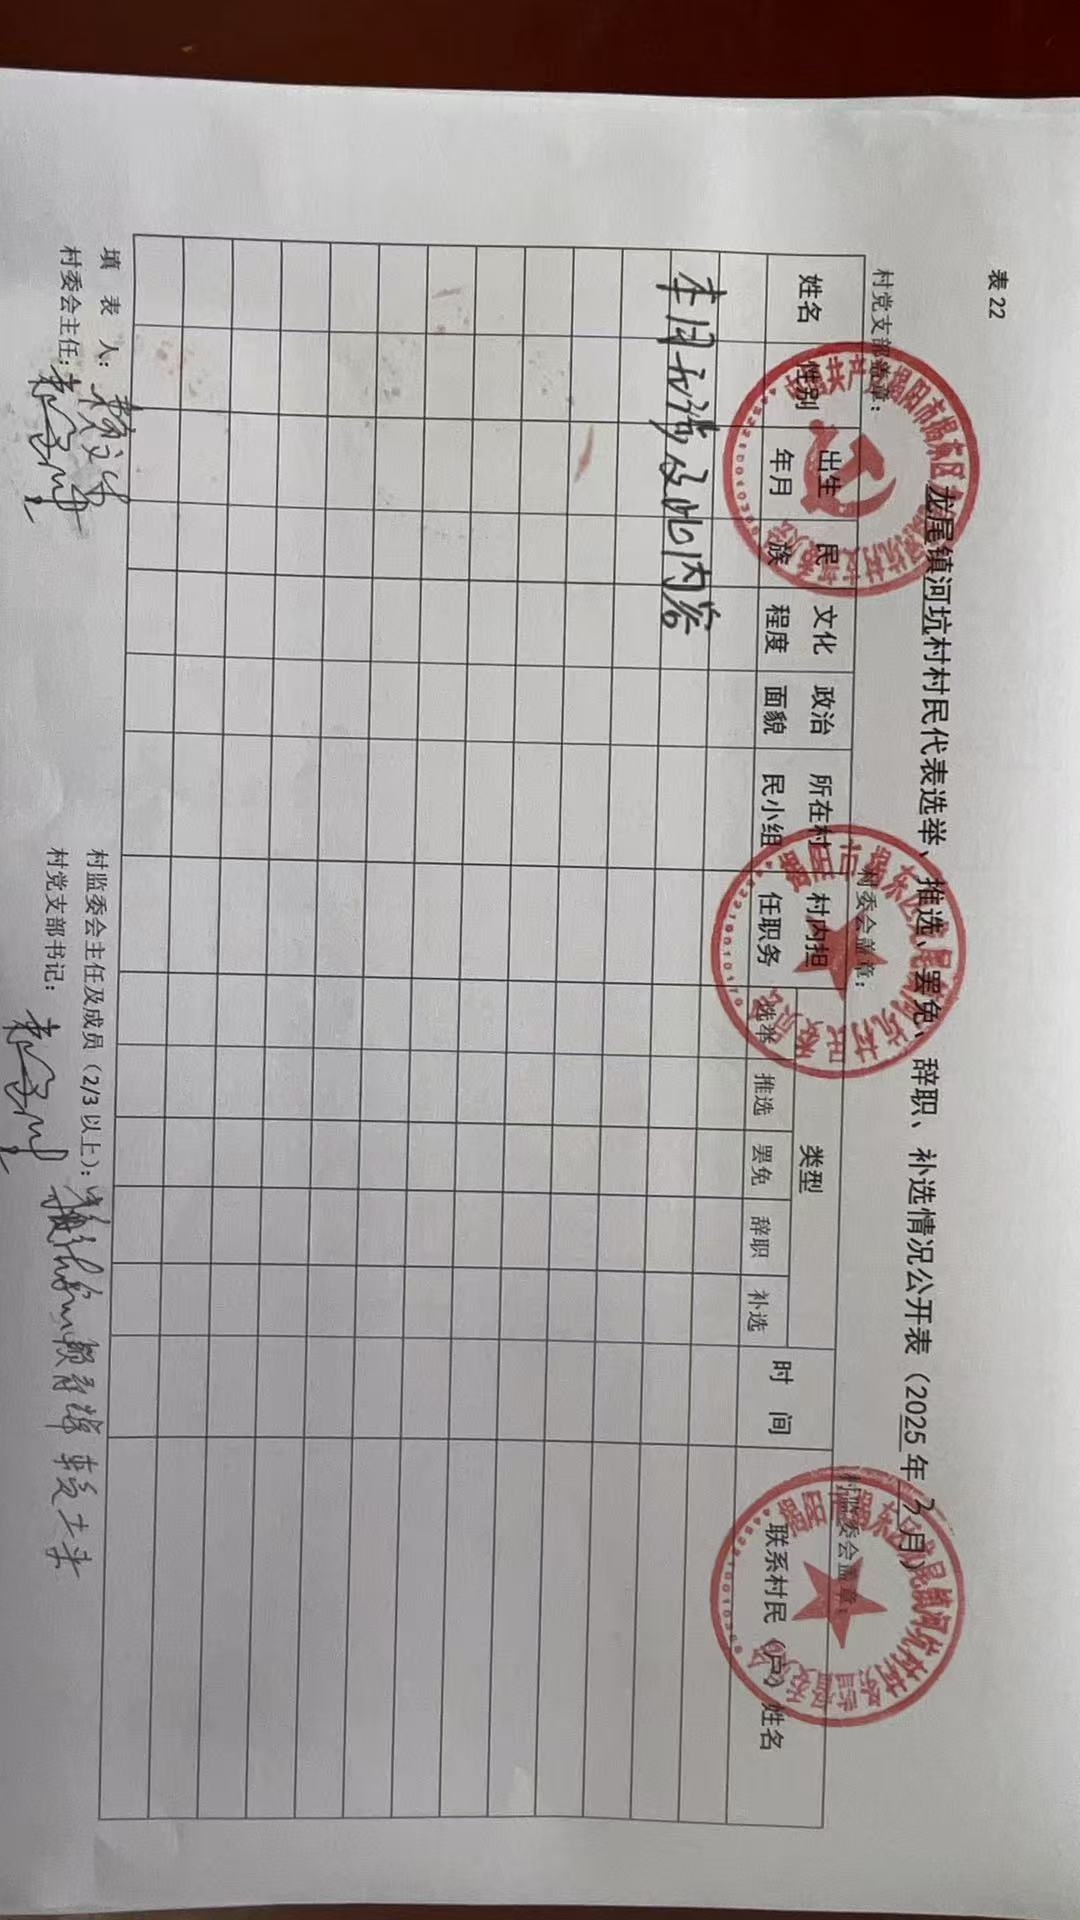 表 22
龙尾镇河坑村村民代表选举、推选、罢免、辞职、补选情况公开表（2025年3月）
村党支部盖章： 村委会盖章： 村监委会盖章：
姓名 性别 出生年月 民族 文化程度 政治面貌 所在村民小组 村内担任职务 类型 时间 联系村民（户）姓名
选举 推选 罢免 辞职 补选
本月无涉及此内容
填表人： 村监委会主任及成员（2/3以上）：
村委会主任： 村党支部书记：